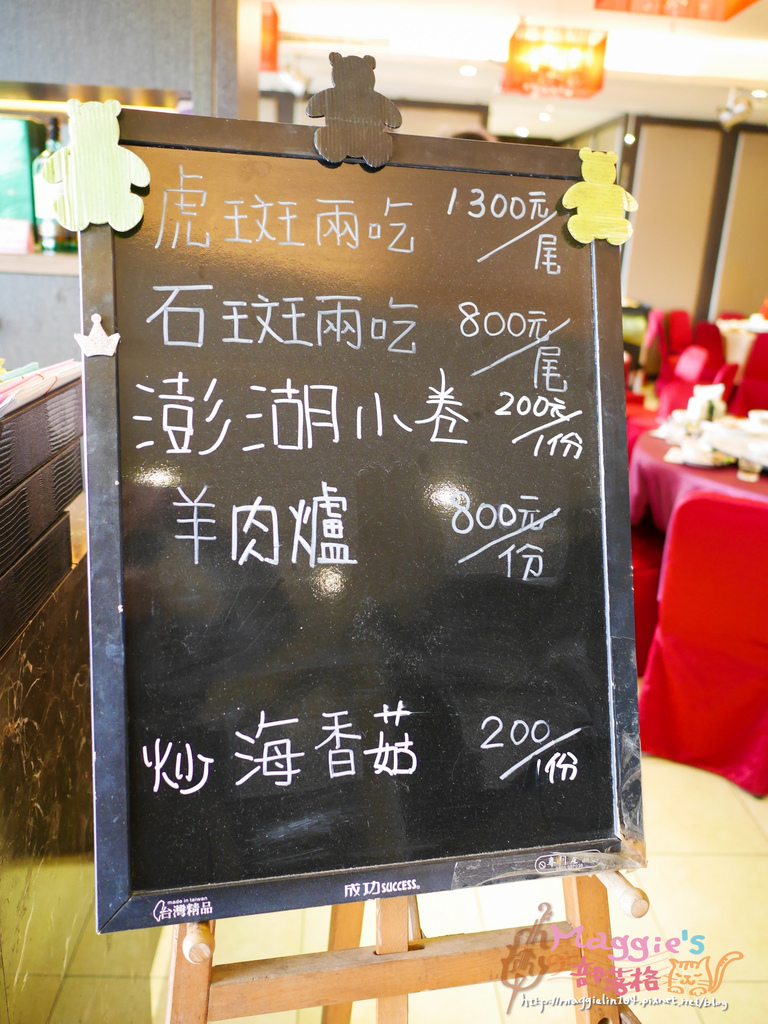 虎斑兩吃 1300元/尾
石斑兩吃 800元/尾
澎湖小卷 200元/1份
羊肉爐 800元/份
炒海香菇 200/1份
成功SUCCESS®
made in taiwan
台灣精品
Maggie's
部落格
http://maggielin104.pixnet.net/blog